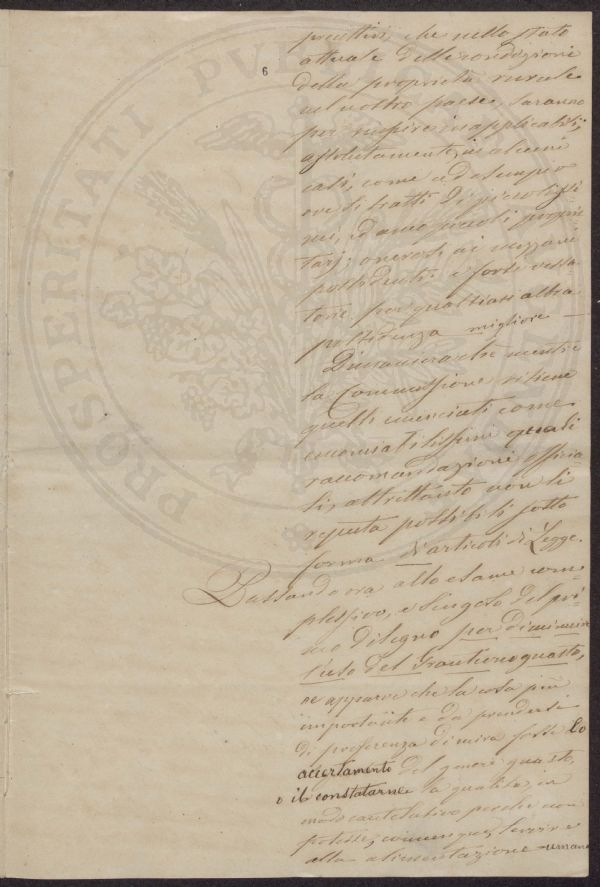 PROSPERITATI PVBLICAE
6
precettivi, che nello stato
attuale delle condizioni
della proprietà rurale
nel nostro paese, saranno
per riuscire inapplicabili,
assolutamente, in alcuni
casi, come ad esempio
ove si tratti di piccolissi
mi, ed anco piccoli proprie
tarj: onerosi ai mezzani
possidenti: e forse vessa-
torie per qualsiasi altra
possidenza migliore —
Dimanierachè mentre
la Commissione ritiene
quelli enunciati come
encomiatissimi quali
raccomandazioni officia
li, altrettanto non li
reputa possibili sotto
forma d'articoli di Legge.
Passando ora allo esame com-
plessivo, e singolo del pri-
mo disegno per diminuire
l'uso del Granturco guasto,
ne apparve che la cosa più
importante e da prendersi
di preferenza di mira fosse lo
accertamento del genere guasto,
o il constatarne la qualità, in
modo cautelativo perchè non
potesse, comunque, servire
alla alimentazione umana